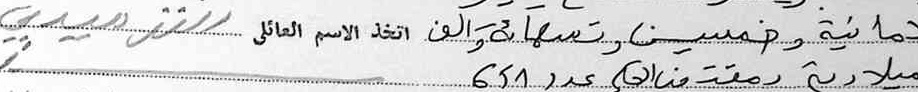 ثمانية وخمسين وتسعمائة وألف اتخذ الاسم العائلي
ميلادية بمقتضى الحكم عدد 658